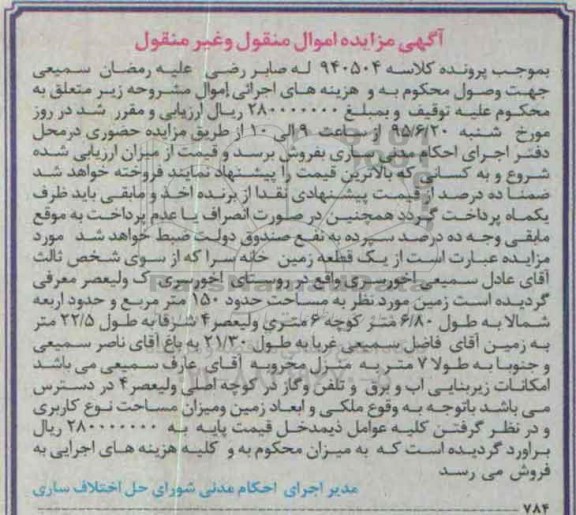 آگهی مزایده اموال منقول وغیر منقول
بموجب پرونده کلاسه ۹۴۰۵۰۴ له صابر رضی علیه رمضان سمیعی
جهت وصول محکوم به و هزینه های اجرائی اموال مشروحه زیر متعلق به
محکوم علیه توقیف و بمبلغ ۲۸۰۰۰۰۰۰۰ ریال ارزیابی و مقرر شد در روز
مورخ شنبه ۹۵/۶/۲۰ از ساعت ۹ الی ۱۰ از طریق مزایده حضوری درمحل
دفتر اجرای احکام مدنی ساری بفروش برسد و قیمت از میزان ارزیابی شده
شروع و به کسانی که بالاترین قیمت را پیشنهاد نمایند فروخته خواهد شد
ضمنا ده درصد از قیمت پیشنهادی نقدا از برنده اخذ و مابقی باید ظرف
یکماه پرداخت گردد همچنین در صورت انصراف یا عدم پرداخت به موقع
مابقی وجه ده درصد سپرده به نفع صندوق دولت ضبط خواهد شد مورد
مزایده عبارت است از یک قطعه زمین خانه سرا که از سوی شخص ثالث
آقای عادل سمیعی اخورسری واقع در روستای اخورسری ک ولیعصر معرفی
گردیده است زمین مورد نظر به مساحت حدود ۱۵۰ متر مربع و حدود اربعه
شمالا به طول ۶/۸۰ متر کوچه ۶ متری ولیعصر۴ شرقا به طول ۲۲/۵ متر
به زمین آقای فاضل سمیعی غربا به طول ۲۱/۳۰ به باغ آقای ناصر سمیعی
و جنوبا به طولا ۷ متر به منزل مخروبه آقای عارف سمیعی می باشد
امکانات زیربنایی اب و برق و تلفن وگاز در کوچه اصلی ولیعصر۴ در دسترس
می باشد باتوجه به وقوع ملکی و ابعاد زمین ومیزان مساحت نوع کاربری
و در نظر گرفتن کلیه عوامل ذیمدخل قیمت پایه به ۲۸۰۰۰۰۰۰۰ ریال
براورد گردیده است که به میزان محکوم به و کلیه هزینه های اجرایی به
فروش می رسد
مدیر اجرای احکام مدنی شورای حل اختلاف ساری
۷۸۴